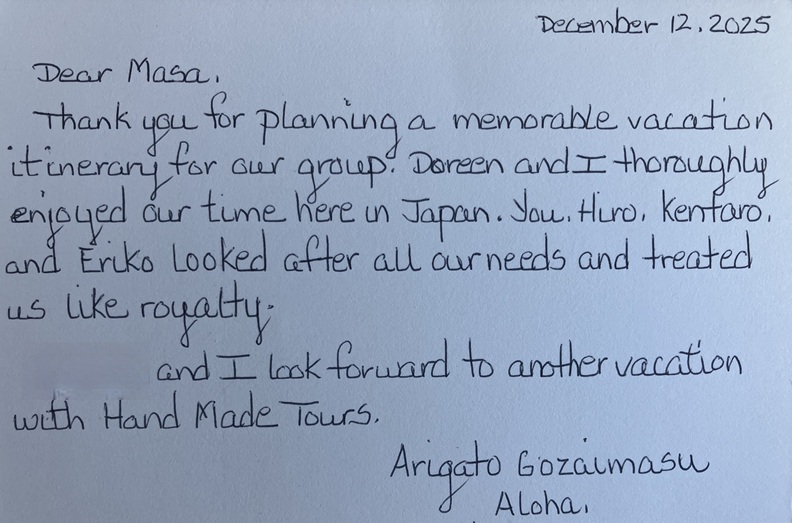 December 12, 2025
Dear Masa,
Thank you for planning a memorable vacation
itinerary for our group. Doreen and I thoroughly
enjoyed our time here in Japan. You, Hiro, Kentaro,
and Eriko Looked after all our needs and treated
us like royalty.
and I look forward to another vacation
with Hand Made Tours.
Arigato Gozaimasu
Aloha,